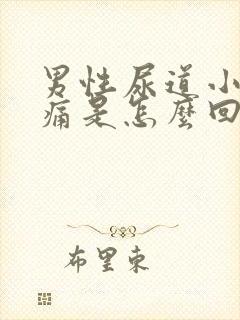 男性尿道小
痛是怎麼回
布里東